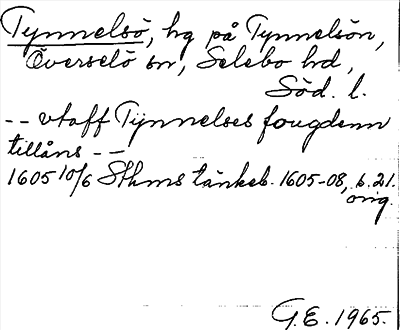 Tynnelsö, hg på Tynnelsön,
Överselö sn, Selebo hd,
Söd. l.
-- vtaff Tynnelses fougdenn
tillåns --
1605 10/6 Sthms tänkeb. 1605-08, s. 21.
orig.
G.E. 1965.